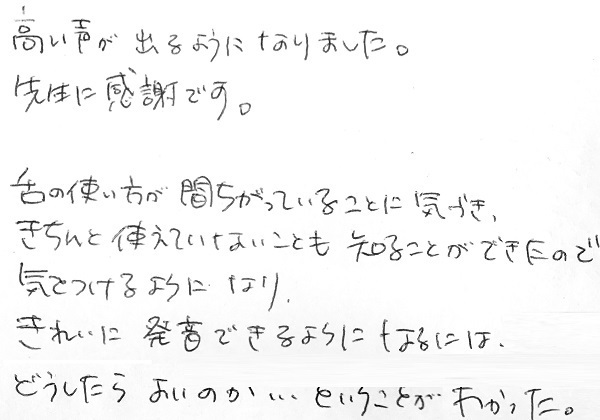 高い声が出るようになりました。
先生に感謝です。
舌の使い方が間ちがっていることに気づき、
きちんと使えていないことも知ることができたので
気をつけるようになり、
きれいに発音できるようになるには、
どうしたらよいのか…ということがわかった。